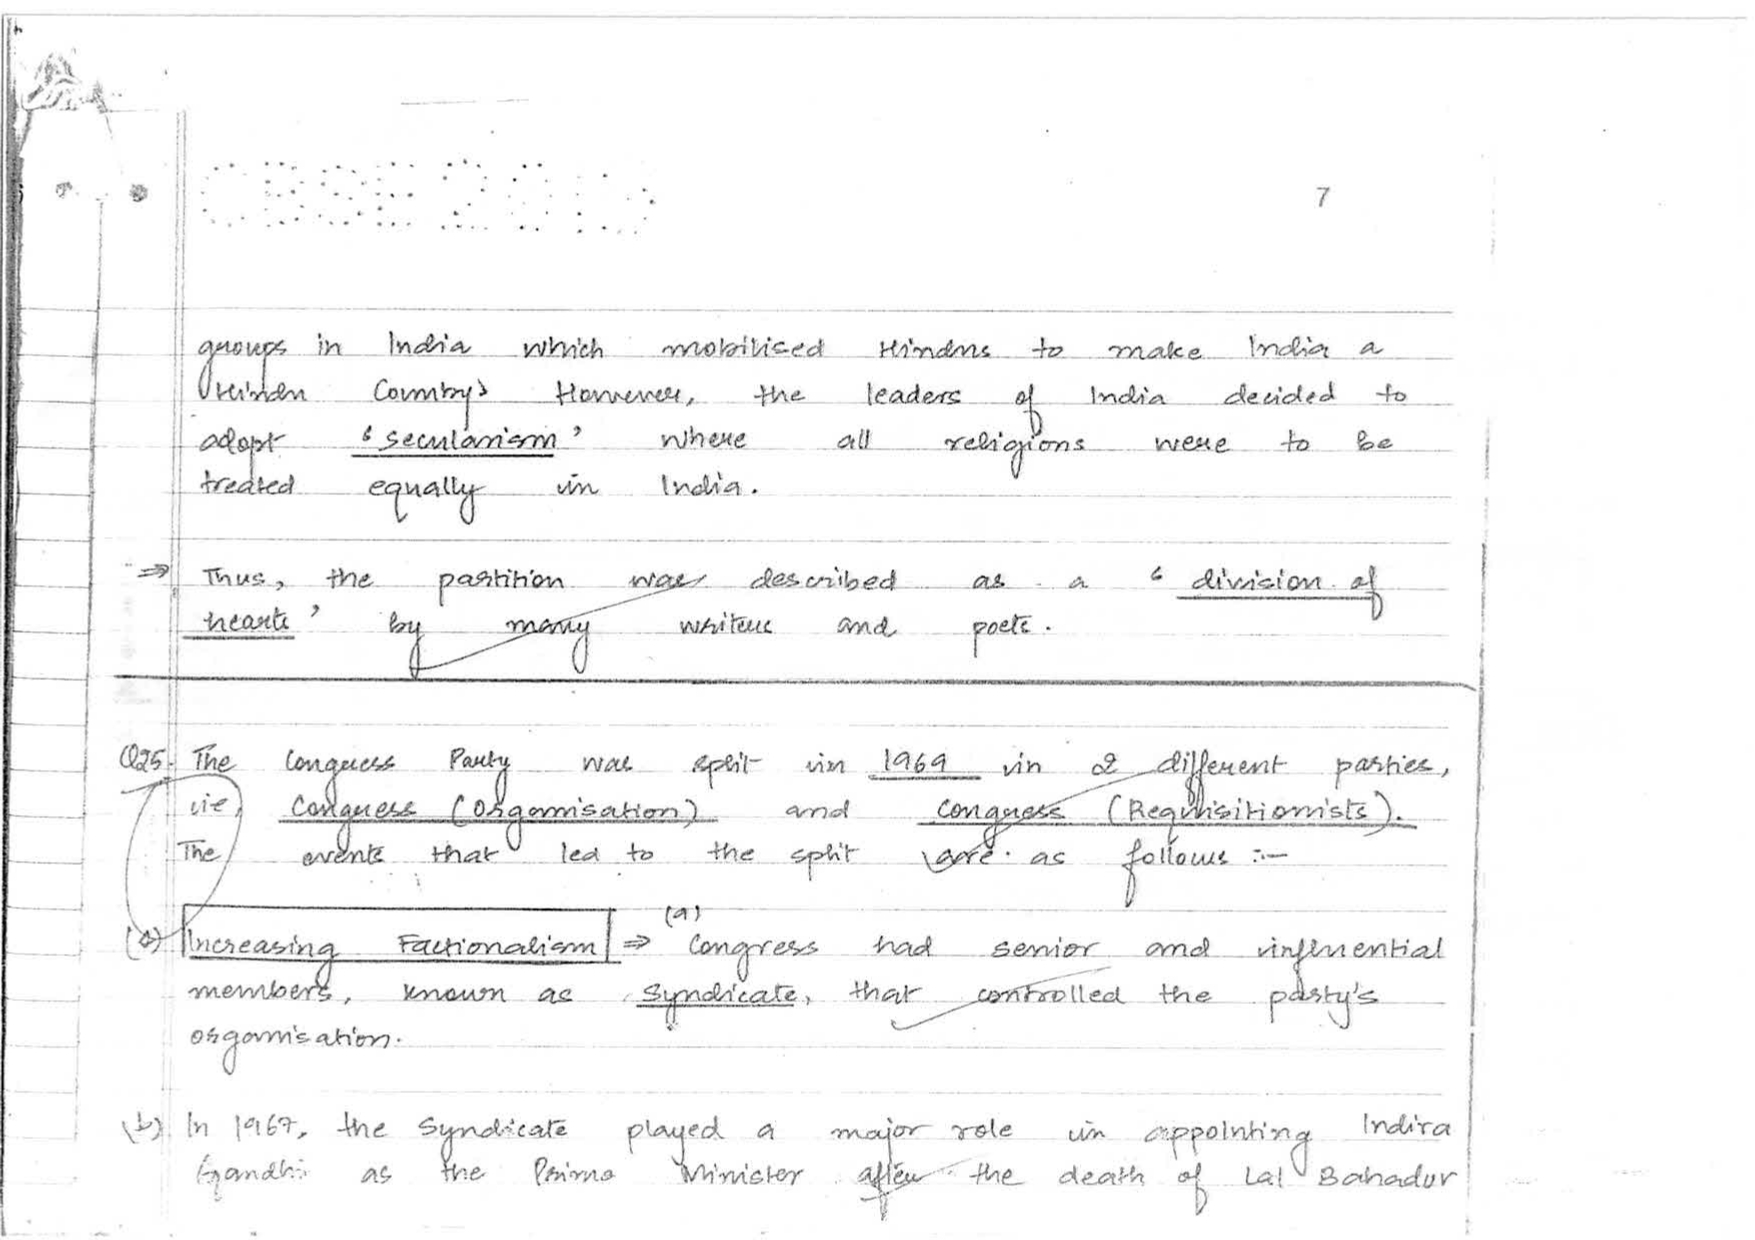 7
groups in India which mobilised Hindus to make India a
Hindu Country. However, the leaders of India decided to
adopt 'secularism' where all religions were to be
treated equally in India.
⇒ Thus, the partition was described as a 'division of
hearts' by many writers and poets.
Q25. The Congress Party was split in 1969 in 2 different parties,
vie, Congress (Organisation) and Congress (Requisitionists).
The events that led to the split are as follows :-
Increasing Factionalism ⇒ (a) Congress had senior and influential
members, known as Syndicate, that controlled the party's
organisation.
(b) In 1967, the Syndicate played a major role in appointing Indira
Gandhi as the Prime Minister after the death of Lal Bahadur